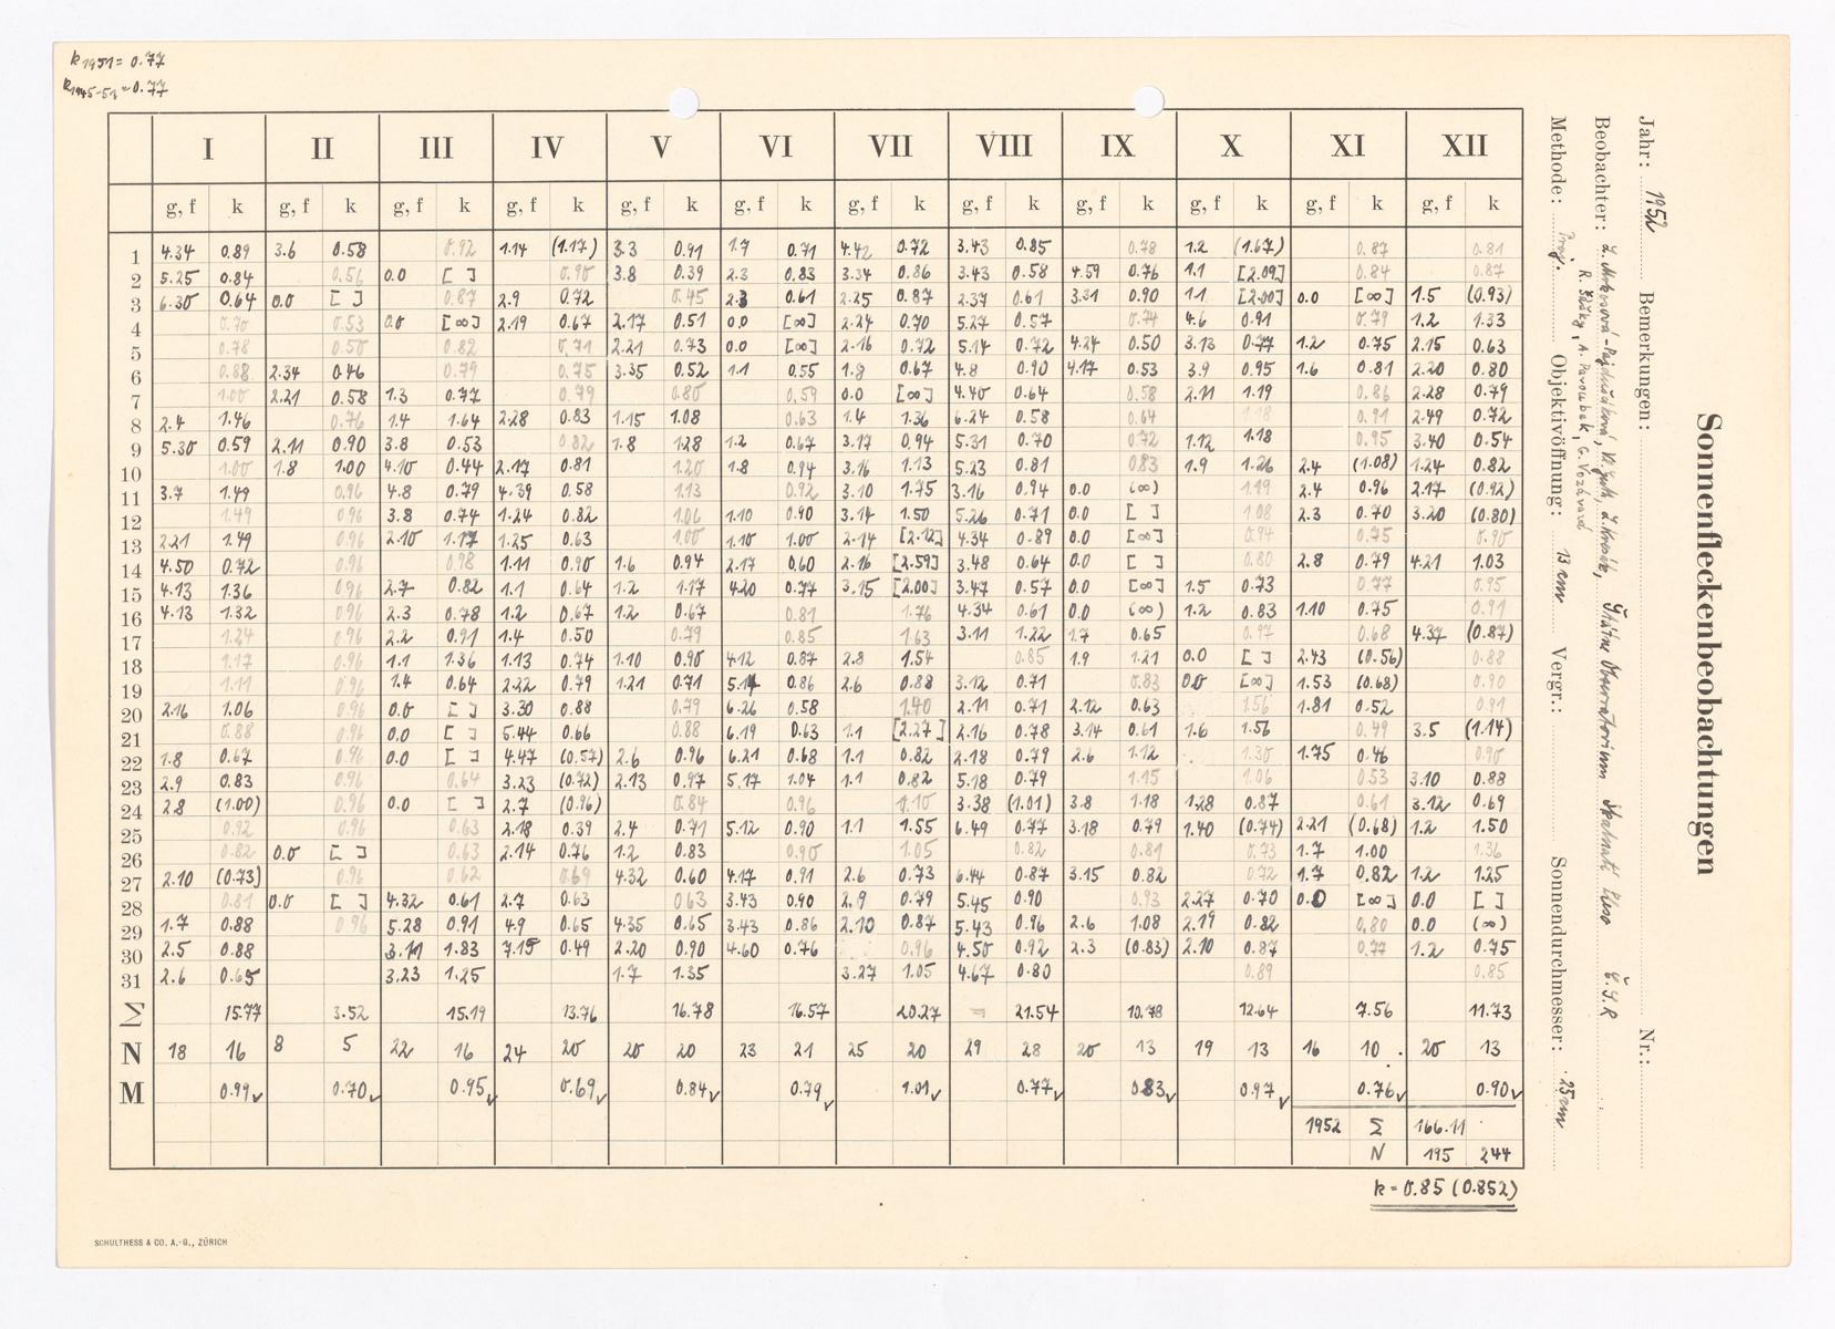 k 1951 = 0.77
k 1945-51 = 0.77
I II III IV V VI VII VIII IX X XI XII
g, f k g, f k g, f k g, f k g, f k g, f k g, f k g, f k g, f k g, f k g, f k g, f k
1 4.34 0.89 3.6 0.58 0.92 1.14 (1.17) 3.3 0.91 1.7 0.71 4.42 0.72 3.43 0.85 0.78 1.2 (1.67) 0.87 0.81
2 5.25 0.84 0.56 0.0 [ ] 0.90 3.8 0.39 2.3 0.83 3.34 0.86 3.43 0.58 4.59 0.76 1.1 [2.09] 0.84 0.87
3 6.30 0.64 0.0 [ ] 0.87 2.9 0.72 0.45 2.3 0.61 2.25 0.87 2.37 0.61 3.31 0.90 1.1 [2.00] 0.0 [∞] 1.5 (0.93)
4 0.70 0.53 0.0 [∞] 2.19 0.67 2.17 0.51 0.0 [∞] 2.24 0.70 5.27 0.57 0.74 4.6 0.91 0.79 1.2 1.33
5 0.78 0.50 0.82 0.71 2.21 0.73 0.0 [∞] 2.16 0.72 5.14 0.72 4.24 0.50 3.13 0.77 1.2 0.75 2.15 0.63
6 0.88 2.34 0.46 0.79 0.75 3.35 0.52 1.1 0.55 1.8 0.67 4.8 0.90 4.17 0.53 3.9 0.95 1.6 0.81 2.20 0.80
7 1.00 2.21 0.58 1.3 0.77 0.79 0.80 0.59 0.0 [∞] 4.40 0.64 0.58 2.11 1.19 0.86 2.28 0.79
8 2.4 1.46 0.76 1.4 1.64 2.28 0.83 1.15 1.08 0.63 1.4 1.36 6.24 0.58 0.64 1.18 0.91 2.49 0.72
9 5.30 0.59 2.11 0.90 3.8 0.53 0.82 1.8 1.28 1.2 0.67 3.17 0.94 5.31 0.70 0.72 1.12 1.18 0.95 3.40 0.54
10 1.00 1.8 1.00 4.10 0.44 2.17 0.81 1.20 1.8 0.94 3.16 1.13 5.23 0.81 0.83 1.9 1.26 2.4 (1.08) 1.24 0.82
11 3.7 1.49 0.96 4.8 0.79 4.39 0.58 1.13 0.92 3.10 1.75 3.16 0.94 0.0 (∞) 1.19 2.4 0.96 2.17 (0.92)
12 1.49 0.96 3.8 0.74 1.24 0.82 1.06 1.10 0.90 3.14 1.50 5.26 0.71 0.0 [ ] 1.08 2.3 0.70 3.20 (0.80)
13 2.21 1.49 0.96 2.10 1.17 1.25 0.63 1.00 1.10 1.00 2.14 [2.12] 4.34 0.89 0.0 [∞] 0.94 0.75 0.90
14 4.50 0.72 0.96 0.98 1.11 0.90 1.6 0.94 2.17 0.60 2.16 [2.59] 3.48 0.64 0.0 [ ] 0.80 2.8 0.79 4.21 1.03
15 4.13 1.36 0.96 2.7 0.82 1.1 0.64 1.2 1.17 4.20 0.77 3.15 [2.00] 3.47 0.57 0.0 [∞] 1.5 0.73 0.77 0.95
16 4.13 1.32 0.96 2.3 0.78 1.2 0.67 1.2 0.67 0.81 1.76 4.34 0.61 0.0 (∞) 1.2 0.83 1.10 0.75 0.91
17 1.24 0.96 2.2 0.91 1.4 0.50 0.79 0.85 1.63 3.11 1.22 1.7 0.65 0.97 0.68 4.37 (0.87)
18 1.17 0.96 1.1 1.36 1.13 0.74 1.10 0.90 4.12 0.87 2.8 1.54 0.85 1.9 1.21 0.0 [ ] 2.43 (0.56) 0.88
19 1.11 0.96 1.4 0.64 2.22 0.79 1.21 0.71 5.14 0.86 2.6 0.88 3.12 0.71 0.83 0.0 [∞] 1.53 (0.68) 0.90
20 2.16 1.06 0.96 0.0 [ ] 3.30 0.88 0.79 6.26 0.58 1.40 2.11 0.71 2.12 0.63 1.56 1.81 0.52 0.91
21 0.88 0.96 0.0 [ ] 5.44 0.66 0.88 6.19 0.63 1.1 [2.27] 2.16 0.78 3.14 0.61 1.6 1.56 0.49 3.5 (1.14)
22 1.8 0.67 0.96 0.0 [ ] 4.47 (0.57) 2.6 0.96 6.21 0.68 1.1 0.82 2.18 0.79 2.6 1.12 1.30 1.75 0.46 0.90
23 2.9 0.83 0.96 0.64 3.23 (0.72) 2.13 0.97 5.17 1.04 1.1 0.82 5.18 0.79 1.15 1.06 0.53 3.10 0.88
24 2.8 (1.00) 0.96 0.0 [ ] 2.7 (0.96) 0.84 0.96 1.10 3.38 (1.01) 3.8 1.18 1.28 0.87 0.61 3.12 0.69
25 0.92 0.96 0.63 2.18 0.39 2.4 0.71 5.12 0.90 1.1 1.55 6.49 0.77 3.18 0.79 1.40 (0.74) 2.21 (0.68) 1.2 1.50
26 0.82 0.0 [ ] 0.63 2.14 0.76 1.2 0.83 0.90 1.05 0.82 0.81 0.73 1.7 1.00 1.36
27 2.10 (0.73) 0.96 0.62 0.69 4.32 0.60 4.17 0.91 2.6 0.73 6.44 0.87 3.15 0.82 0.72 1.7 0.82 1.2 1.25
28 0.81 0.0 [ ] 4.32 0.61 2.7 0.63 0.63 3.43 0.90 2.9 0.79 5.45 0.90 0.93 2.27 0.70 0.0 [∞] 0.0 [ ]
29 1.7 0.88 0.96 5.28 0.91 4.9 0.65 4.35 0.65 3.43 0.86 2.10 0.87 5.43 0.96 2.6 1.08 2.19 0.82 0.80 0.0 (∞)
30 2.5 0.88 3.11 1.83 7.15 0.49 2.20 0.90 4.60 0.76 0.96 4.50 0.92 2.3 (0.83) 2.10 0.87 0.77 1.2 0.75
31 2.6 0.65 3.23 1.25 1.7 1.35 3.27 1.05 4.67 0.80 0.89 0.85
Σ 15.77 3.52 15.19 13.76 16.78 16.57 20.27 21.54 10.78 12.64 7.56 11.73
N 18 16 8 5 22 16 24 20 20 20 23 21 25 20 29 28 20 13 19 13 16 10 20 13
M 0.99 0.70 0.95 0.69 0.84 0.79 1.01 0.77 0.83 0.97 0.76 0.90
1952 Σ 166.11
N 195 244
k = 0.85 (0.852)
SCHULTHESS & CO. A.-G., ZÜRICH
Sonnenfleckenbeobachtungen
Jahr: 1952 Bemerkungen: Nr.:
Beobachter: Č.S.R
Methode: Proj. Objektivöffnung: 13 cm Vergr.: Sonnendurchmesser: 25 cm